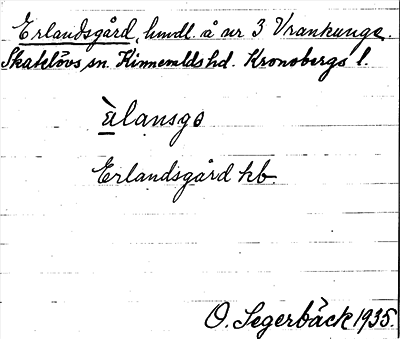 Erlandsgård, hmdl. å nr 3 Vrankunge.
Skatelövs sn. Kinnevalds hd. Kronobergs l.
èlansgo
Erlandsgård hb.
O. Segerbäck 1935.